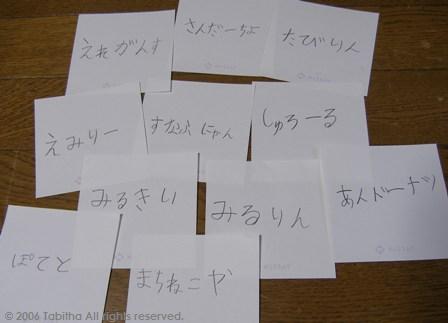 さんだーちょ
たびりん
えれがんす
えみりー
すなふにゃん
しゅろーる
みるきい
みるりん
あんドーナツ
ぽてと
まちねこや
© 2006 Tabitha All rights reserved.